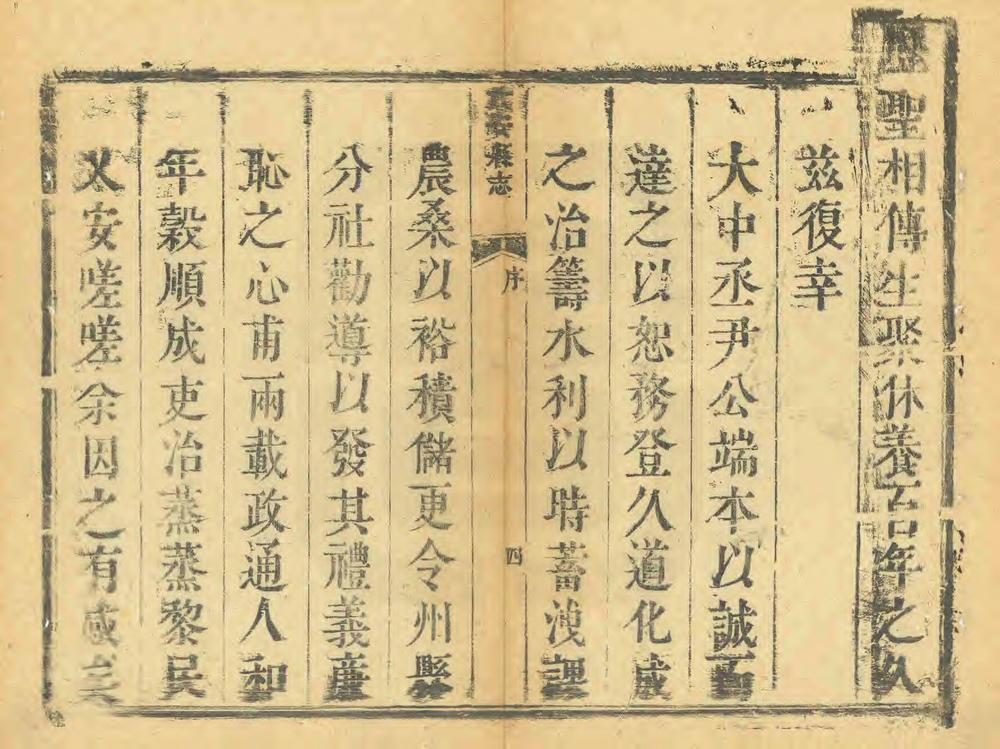 歷聖相傳生聚休養百年之久
兹復幸
大中丞尹公端本以誠而
達之以恕務登久道化成
之治籌水利以時蓄洩課
安縣志
序
四
農桑以裕積儲更令州縣
分社勸導以發其禮義廉
恥之心甫兩載政通人和
年穀順成吏治蒸蒸黎民
乂安嗟嗟余因之有感矣